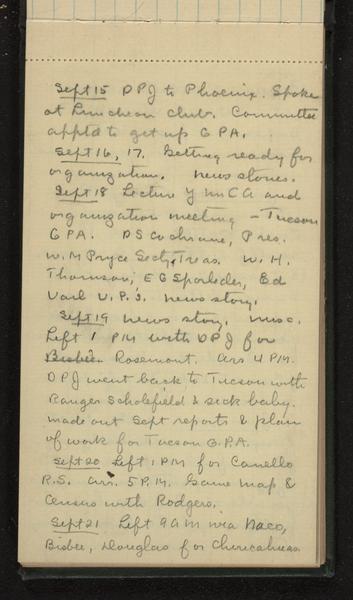 Sept 15 DPJ to Phoenix. Spoke
at Luncheon Club. Committee
apptd to get up GPA.
Sept 16, 17. Getting ready for
organization. News stories.
Sept 18 Lecture YMCA and
organization meeting - Tucson
GPA. DS Cochrane, Pres.
W.M Pryce Secty, Treas. W.H.
Thomson, EG Sporleder, Ed
Vail V.P.'s. News story.
Sept 19 News story. Misc.
Left 1 PM with DPJ for
Bisbee Rosemont. Arr 4 PM.
DPJ went back to Tucson with
Ranger Scholefield & sick baby.
Made out Sept reports & plan
of work for Tucson G.P.A.
Sept 20 Left 1 PM for Canello
R.S. Arr. 5 P.M. Game map &
Census with Rodgers.
Sept 21 Left 9 am via Naco,
Bisbee, Douglas for Chiricahuas.